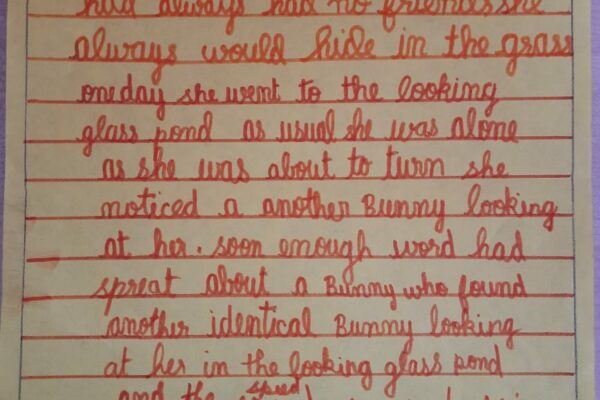 had always had no friends she
always would hide in the grass
one day she went to the looking
glass pond as usual she was alone
as she was about to turn she
noticed a another Bunny looking
at her. soon enough word had
spreat about a Bunny who found
another identical Bunny looking
at her in the looking glass pond
and the speed